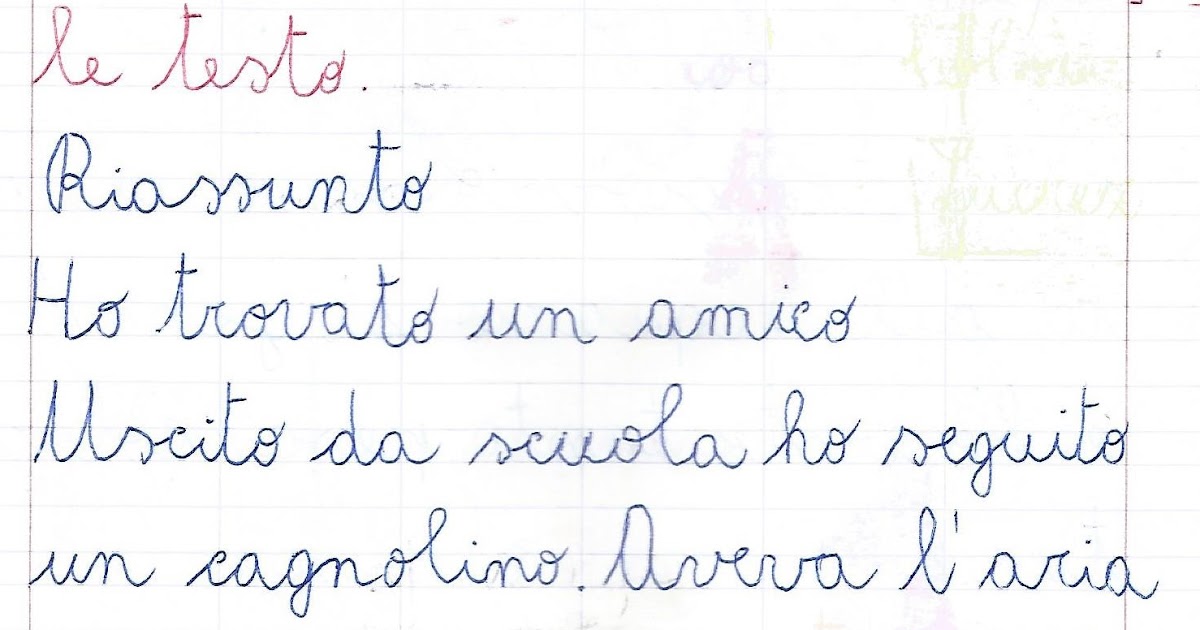 le testo.
Riassunto
Ho trovato un amico
Uscito da scuola ho seguito
un cagnolino. Aveva l'aria